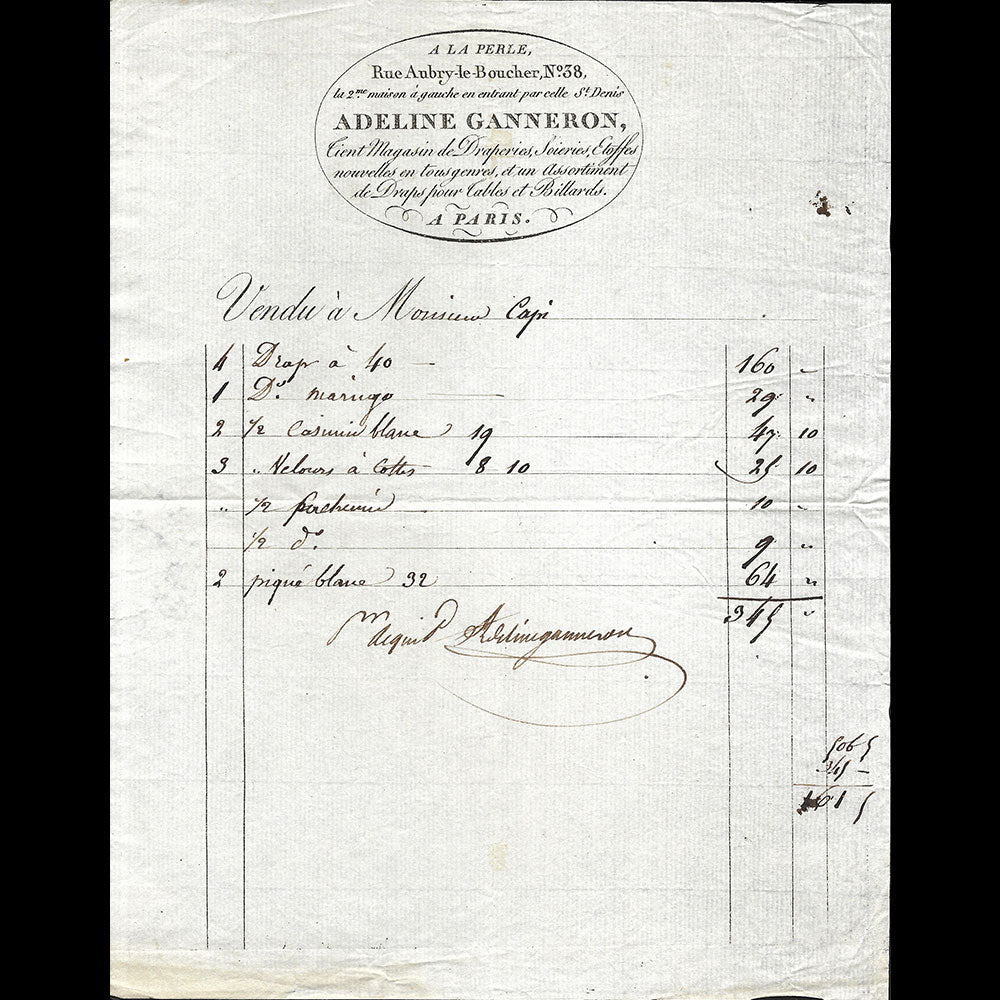 A LA PERLE,
Rue Aubry-le-Boucher, Nº 38,
la 2.me maison à gauche en entrant par celle St. Denis
ADELINE GANNERON,
Tient Magasin de Draperies, Soieries, Etoffes
nouvelles en tous genres, et un Assortiment
de Draps pour Tables et Billards.
A PARIS.
Vendu à Monsieur Capi
4 Drap à 40 — 160 "
1 Do. maringo 29 "
2 1/2 Casimir blanc 19 47 10
3 " Velours à Cottes 8 10 25 10
" 1/2 10 "
1/2 do. 9 "
2 piqué blanc 32 64 "
345 "
Adelineganneron
506 5
345 —
161 5